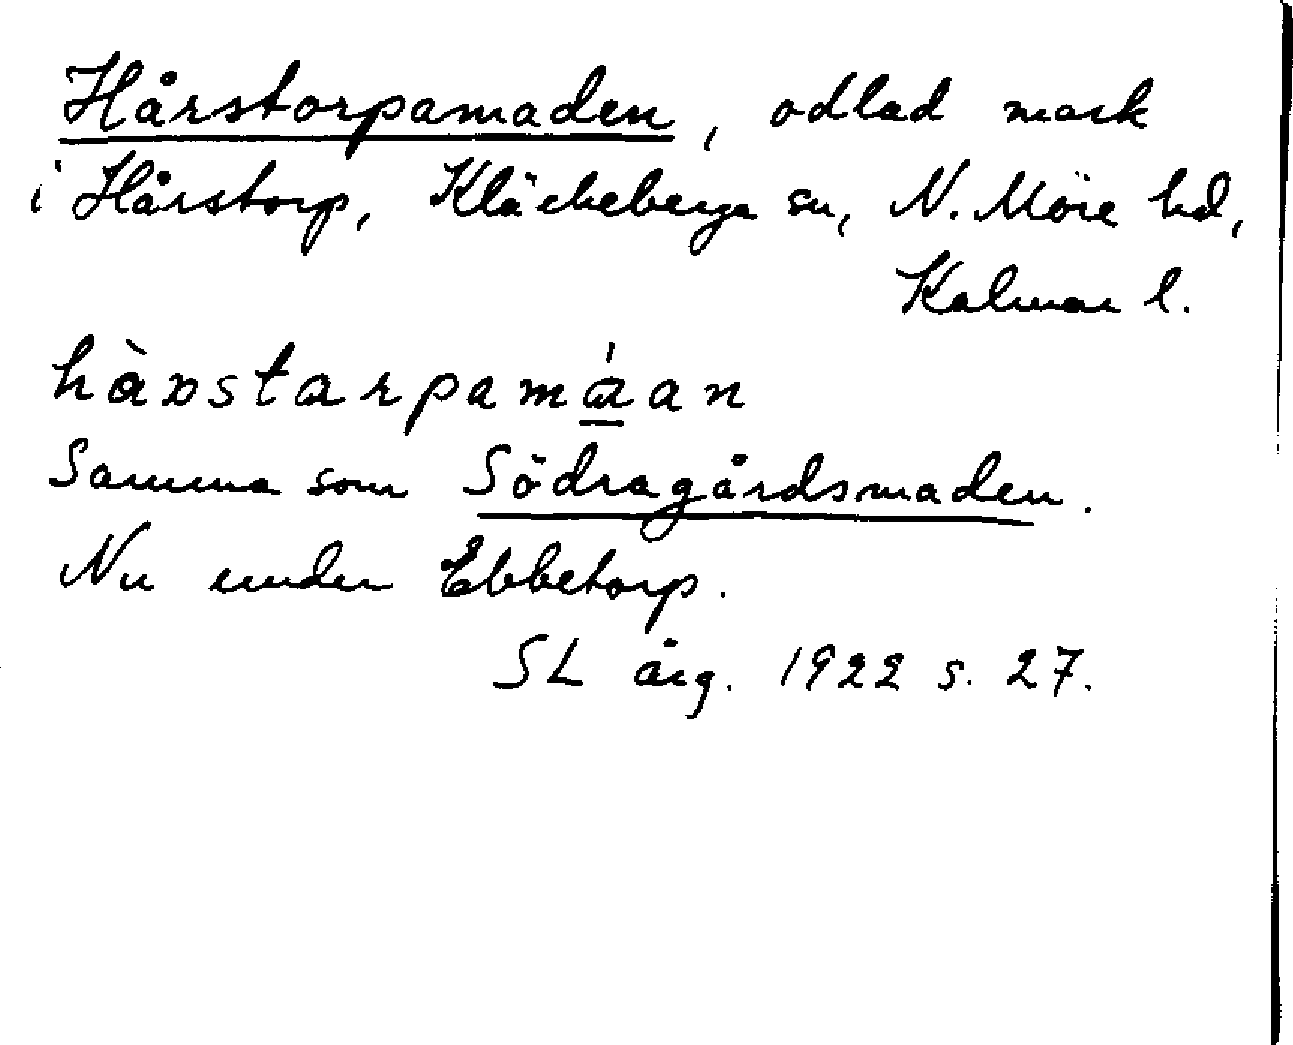 Hårstorpamaden, odlad mark
i Hårstorp, Kläckeberga sn, N. Möre hd,
Kalmar l.
hàɒstarpamá̱an
Samma som Södragårdsmaden.
Nu under Ebbetorp.
SL årg. 1922 s. 27.